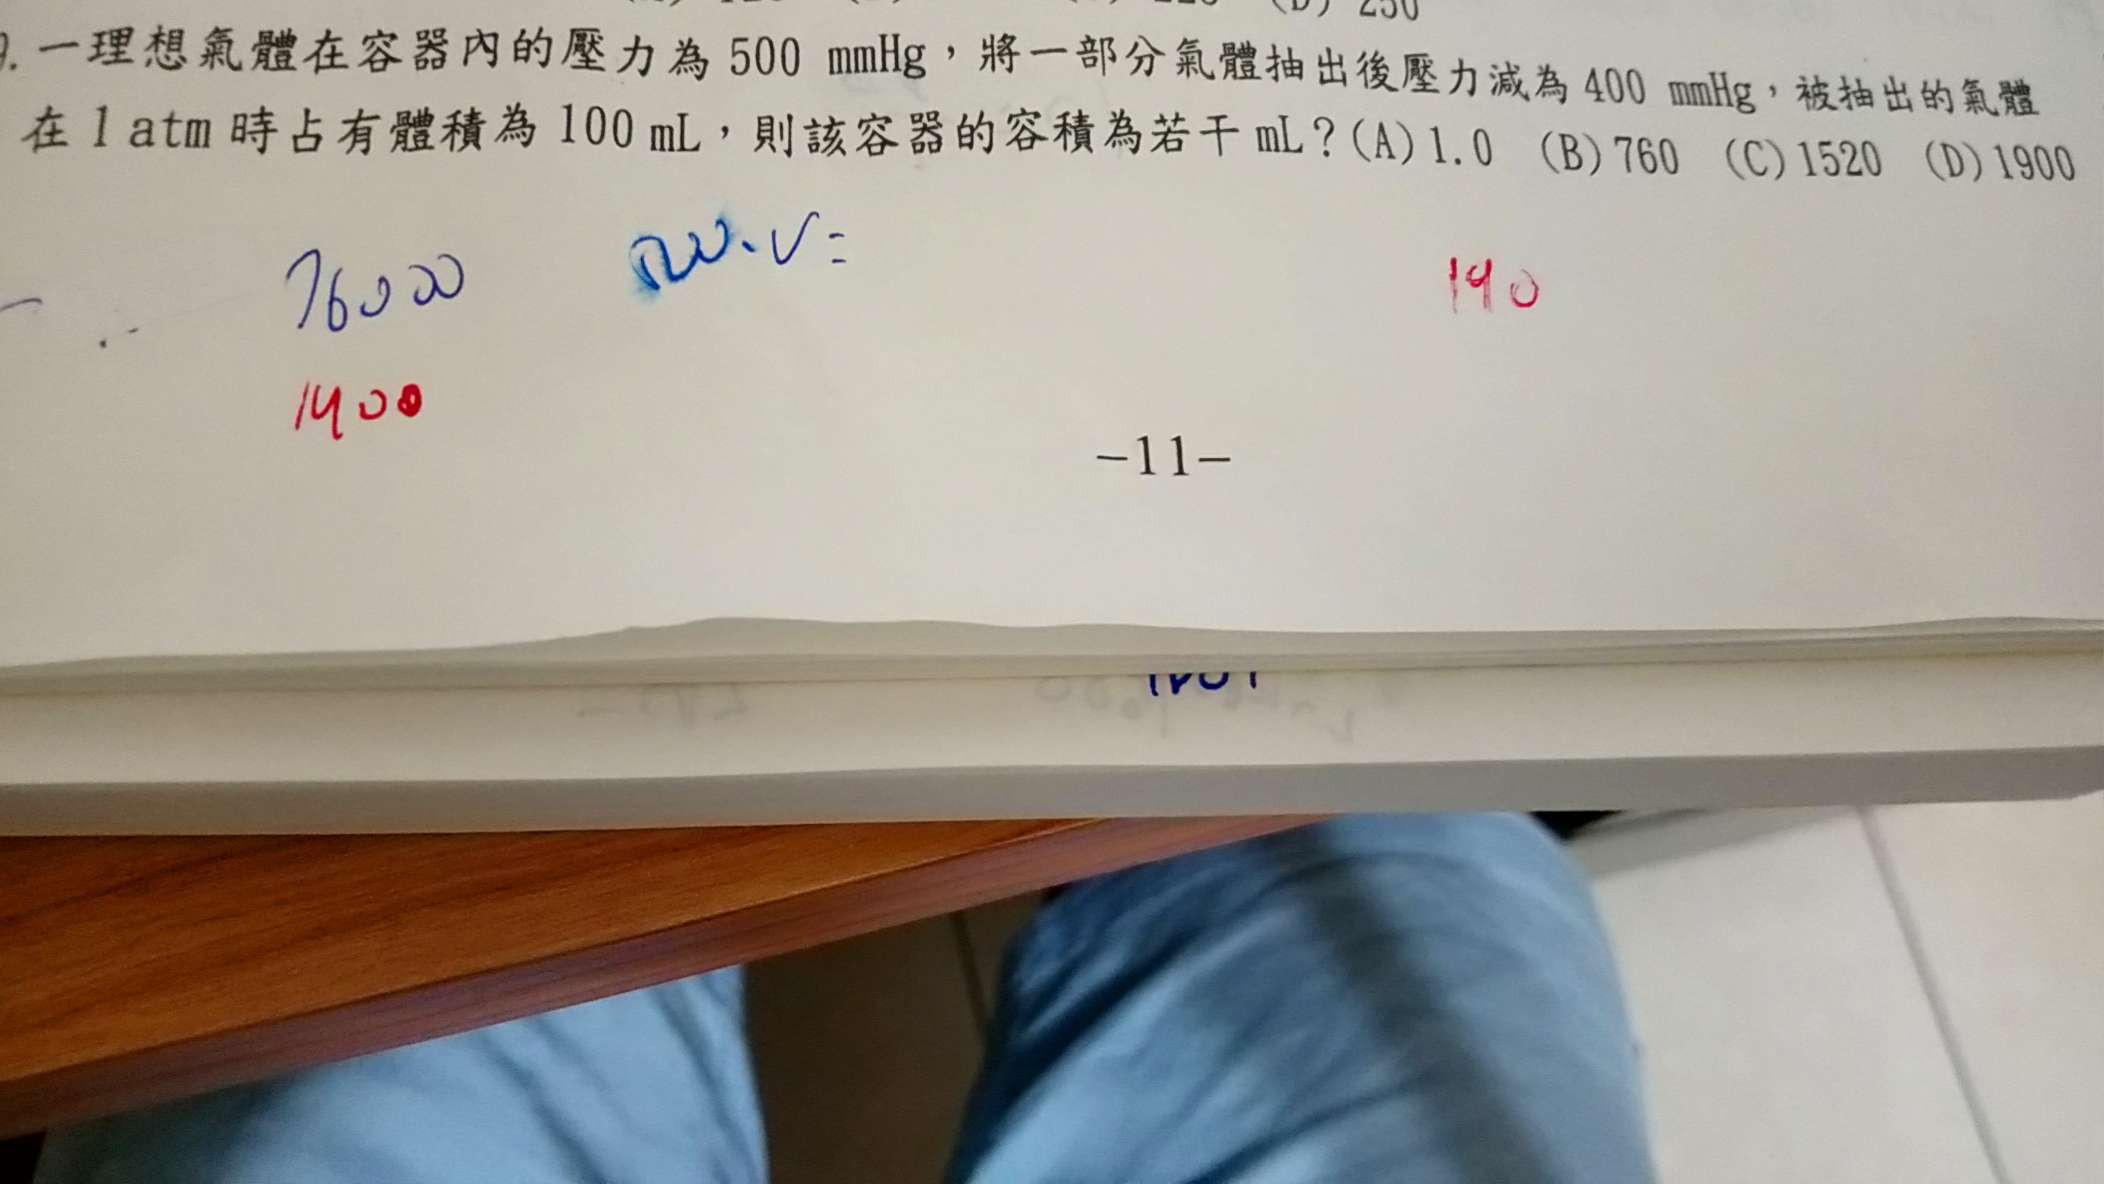 (D) 250
9. 一理想氣體在容器內的壓力為 500 mmHg，將一部分氣體抽出後壓力減為 400 mmHg，被抽出的氣體
在 1 atm 時占有體積為 100 mL，則該容器的容積為若干 mL？(A) 1.0 (B) 760 (C) 1520 (D) 1900
76000
190
-11-